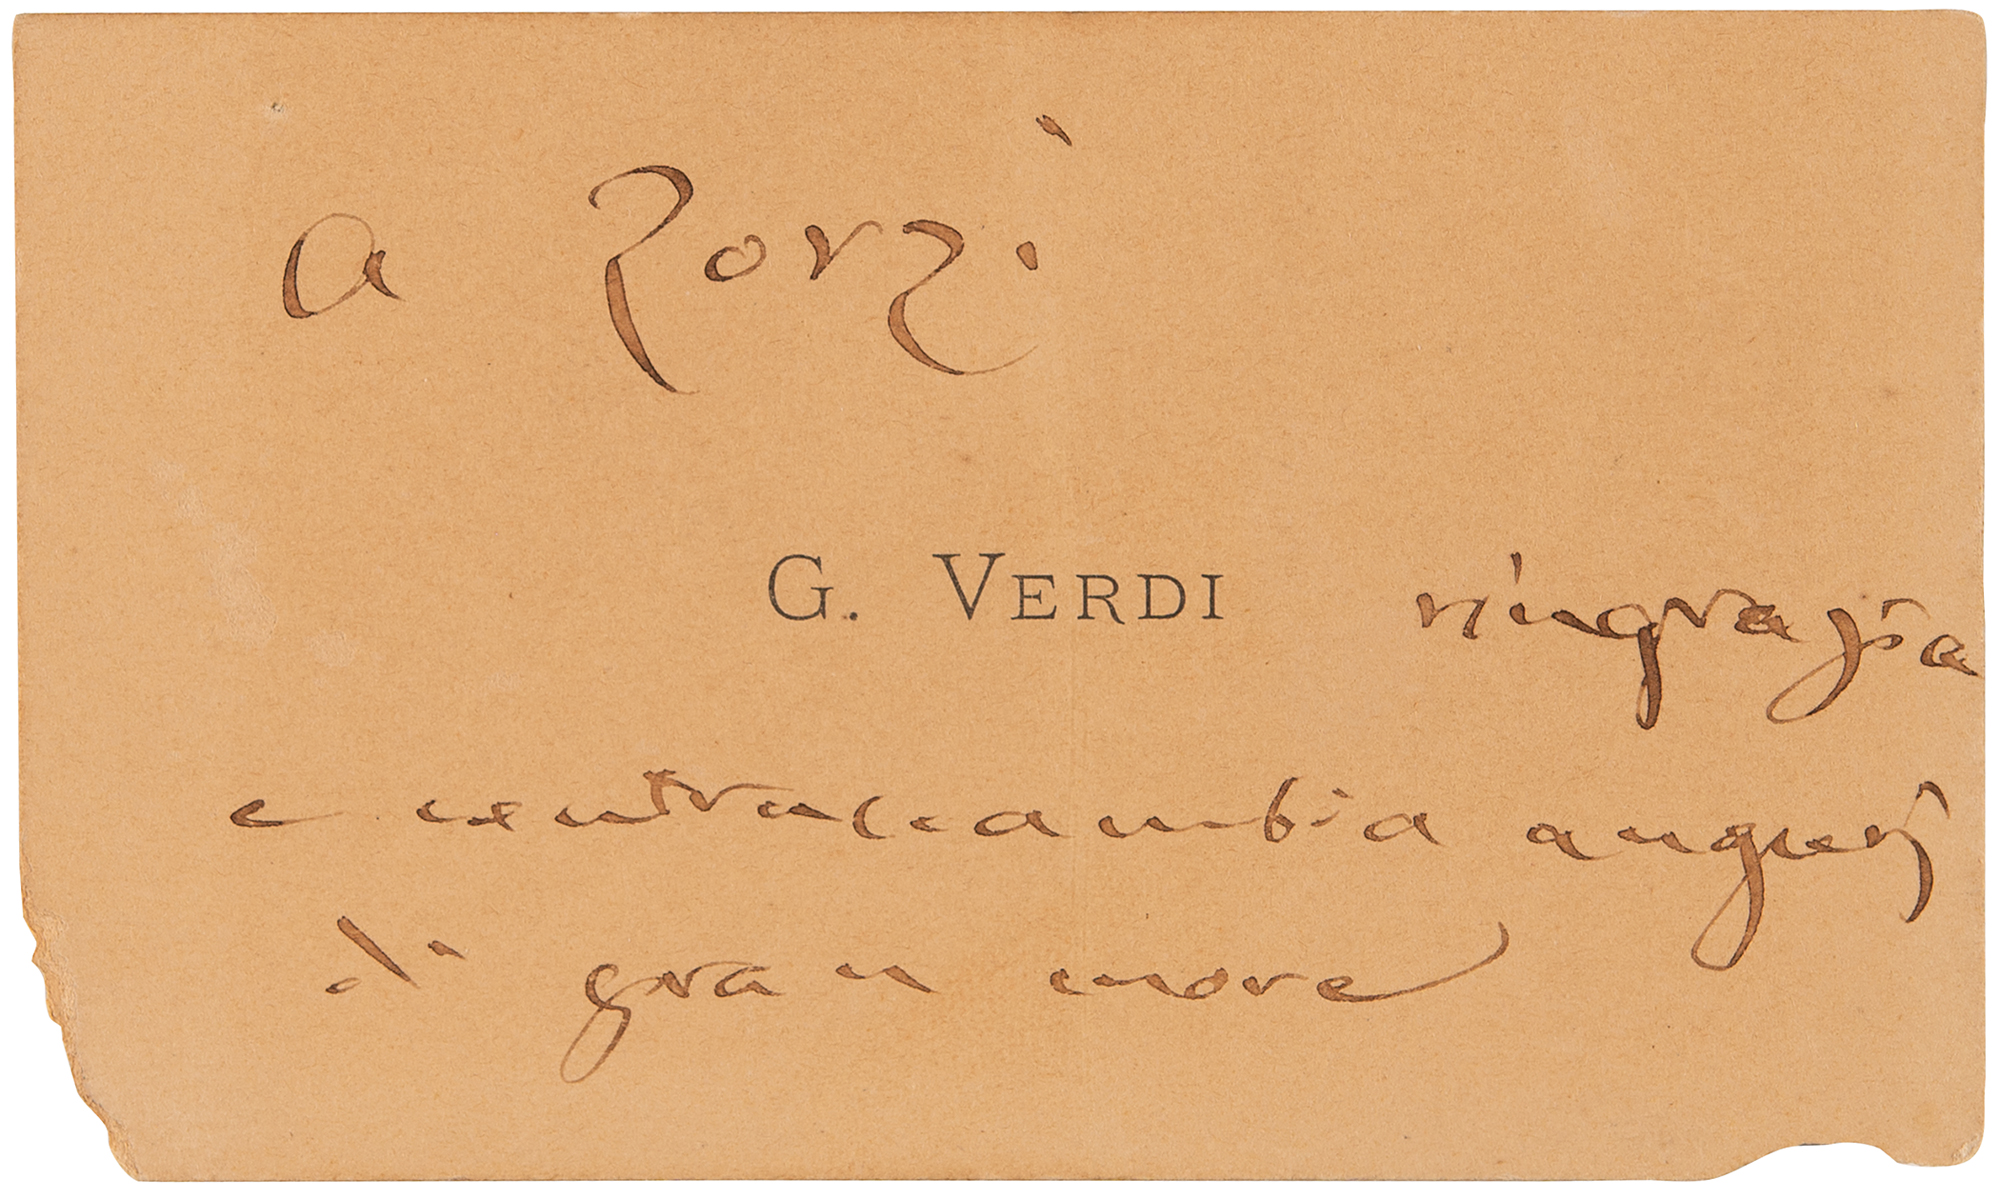 a Zorzi
G. VERDI ringrazia
e contraccambia augurj
di gran cuore